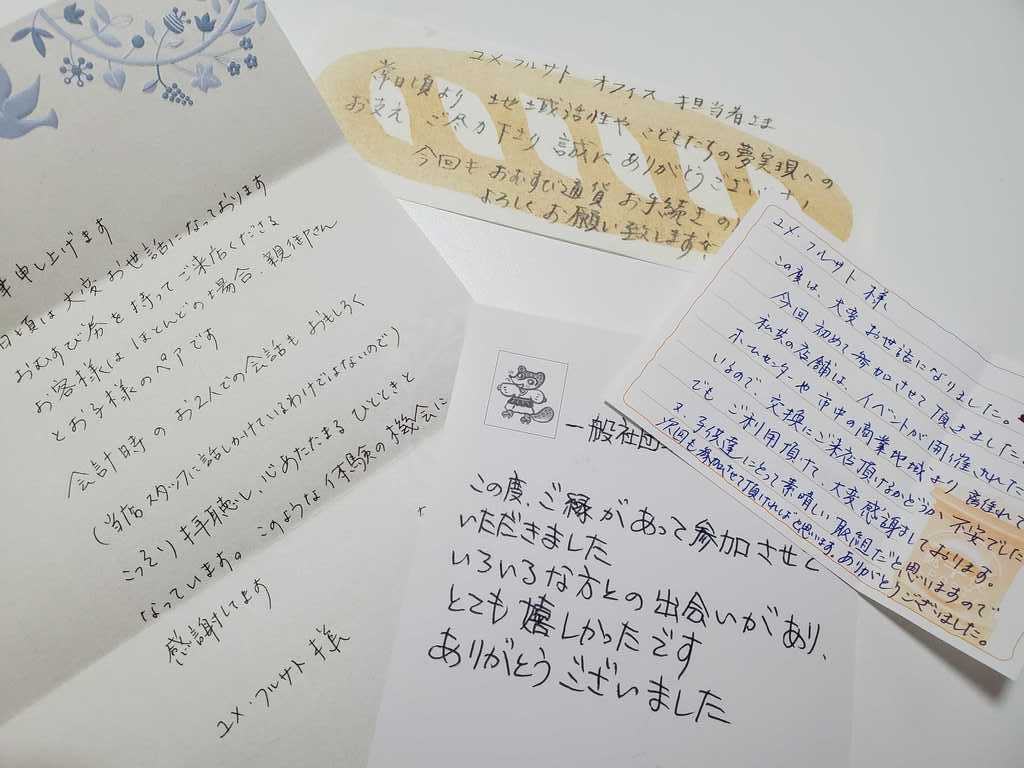 申し上げます
日頃は大変お世話になっております
おむすび券を持ってご来店くださる
お客様はほとんどの場合、親御さん
とお子様のペアです
会計時のお2人での会話もおもしろく
(当店スタッフに話しかけているわけではないので)
こっそり拝聴し、心あたたまるひとときと
なっています。このような体験の機会に
感謝してます
ユメ・フルサト様
ユメ・フルサト オフィス 担当者さま
常日頃より 地域活性や こどもたちの夢実現への
お支え ご尽力下さり 誠にありがとうござい
今回も おむすび通貨 お手続きの
よろしくお願い致します
一般社団
この度、ご縁があって参加させて
いただきました
いろいろな方との出会いがあり、
とても嬉しかったです
ありがとうございました
ユメ・フルサト 様
この度は、大変お世話になりました。
今回初めて参加させて頂きました
私共の店舗は、イベントが開催された
ホームセンターや市中の商業地域より離れて
いるので、交換にご来店頂けるかどうか、不安でした
でもご利用頂けて、大変感謝しております。
又、子供達にとって素晴しい取組だと思いますので
次回も参加させて頂ければと思います。ありがとうございました。